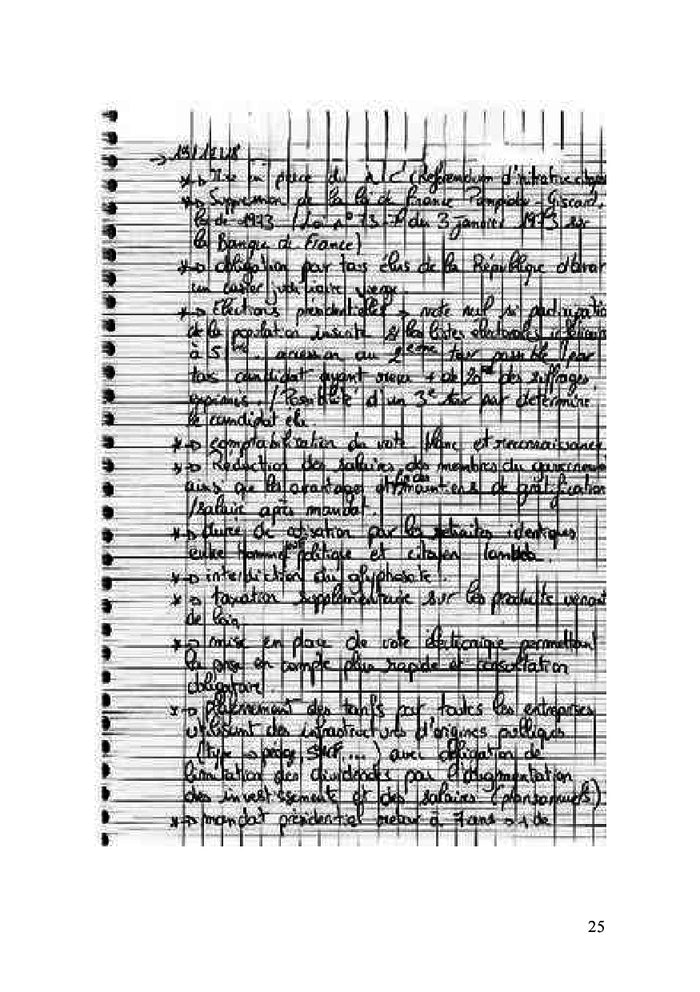 → 13/12/18
*→ Mise en place du RIC (Referendum d'initiative citoyen
*→ Suppression de la loi de France Pompidou - Giscard,
loi de 1973 (Loi n° 73-7 du 3 janvier 1973 sur
la Banque de France)
*→ obligation pour tous élus de la République d'avoir
un casier judiciaire vierge.
*→ Elections présidentielles → vote nul si participation
de la population inscrite les listes électorales
à 5 accession au 2ème tour possible pour
tous candidat ayant + de 20 des suffrages
exprimés. / Possibilité d'un 3e tour pour determiner
le candidat elu.
*→ comptabilisation du vote blanc et reconnaissance
*→ Réduction des salaires des membres du gouvernement
ainsi que les avantages et maintiens de gratification
/salaire après mandat.
*→ durée de cotisation pour les retraites identiques
entre Homme politique et citoyen lambda.
*→ interdiction du glyphosate.
*→ taxation supplémentaire sur les produits venant
de loin
*→ mise en place de vote électronique permettant
la prise en compte plus rapide et consultation
obligatoire.
*→ plafonnement des tarifs par toutes les entreprises
utilisant des infrastructures d'origines publiques
(type → péage, SNCF, ...) avec obligation de
limitation des dividendes par l'augmentation
des investissements et des salaires
*→ mandat présidentiel retour à 7 ans de
25